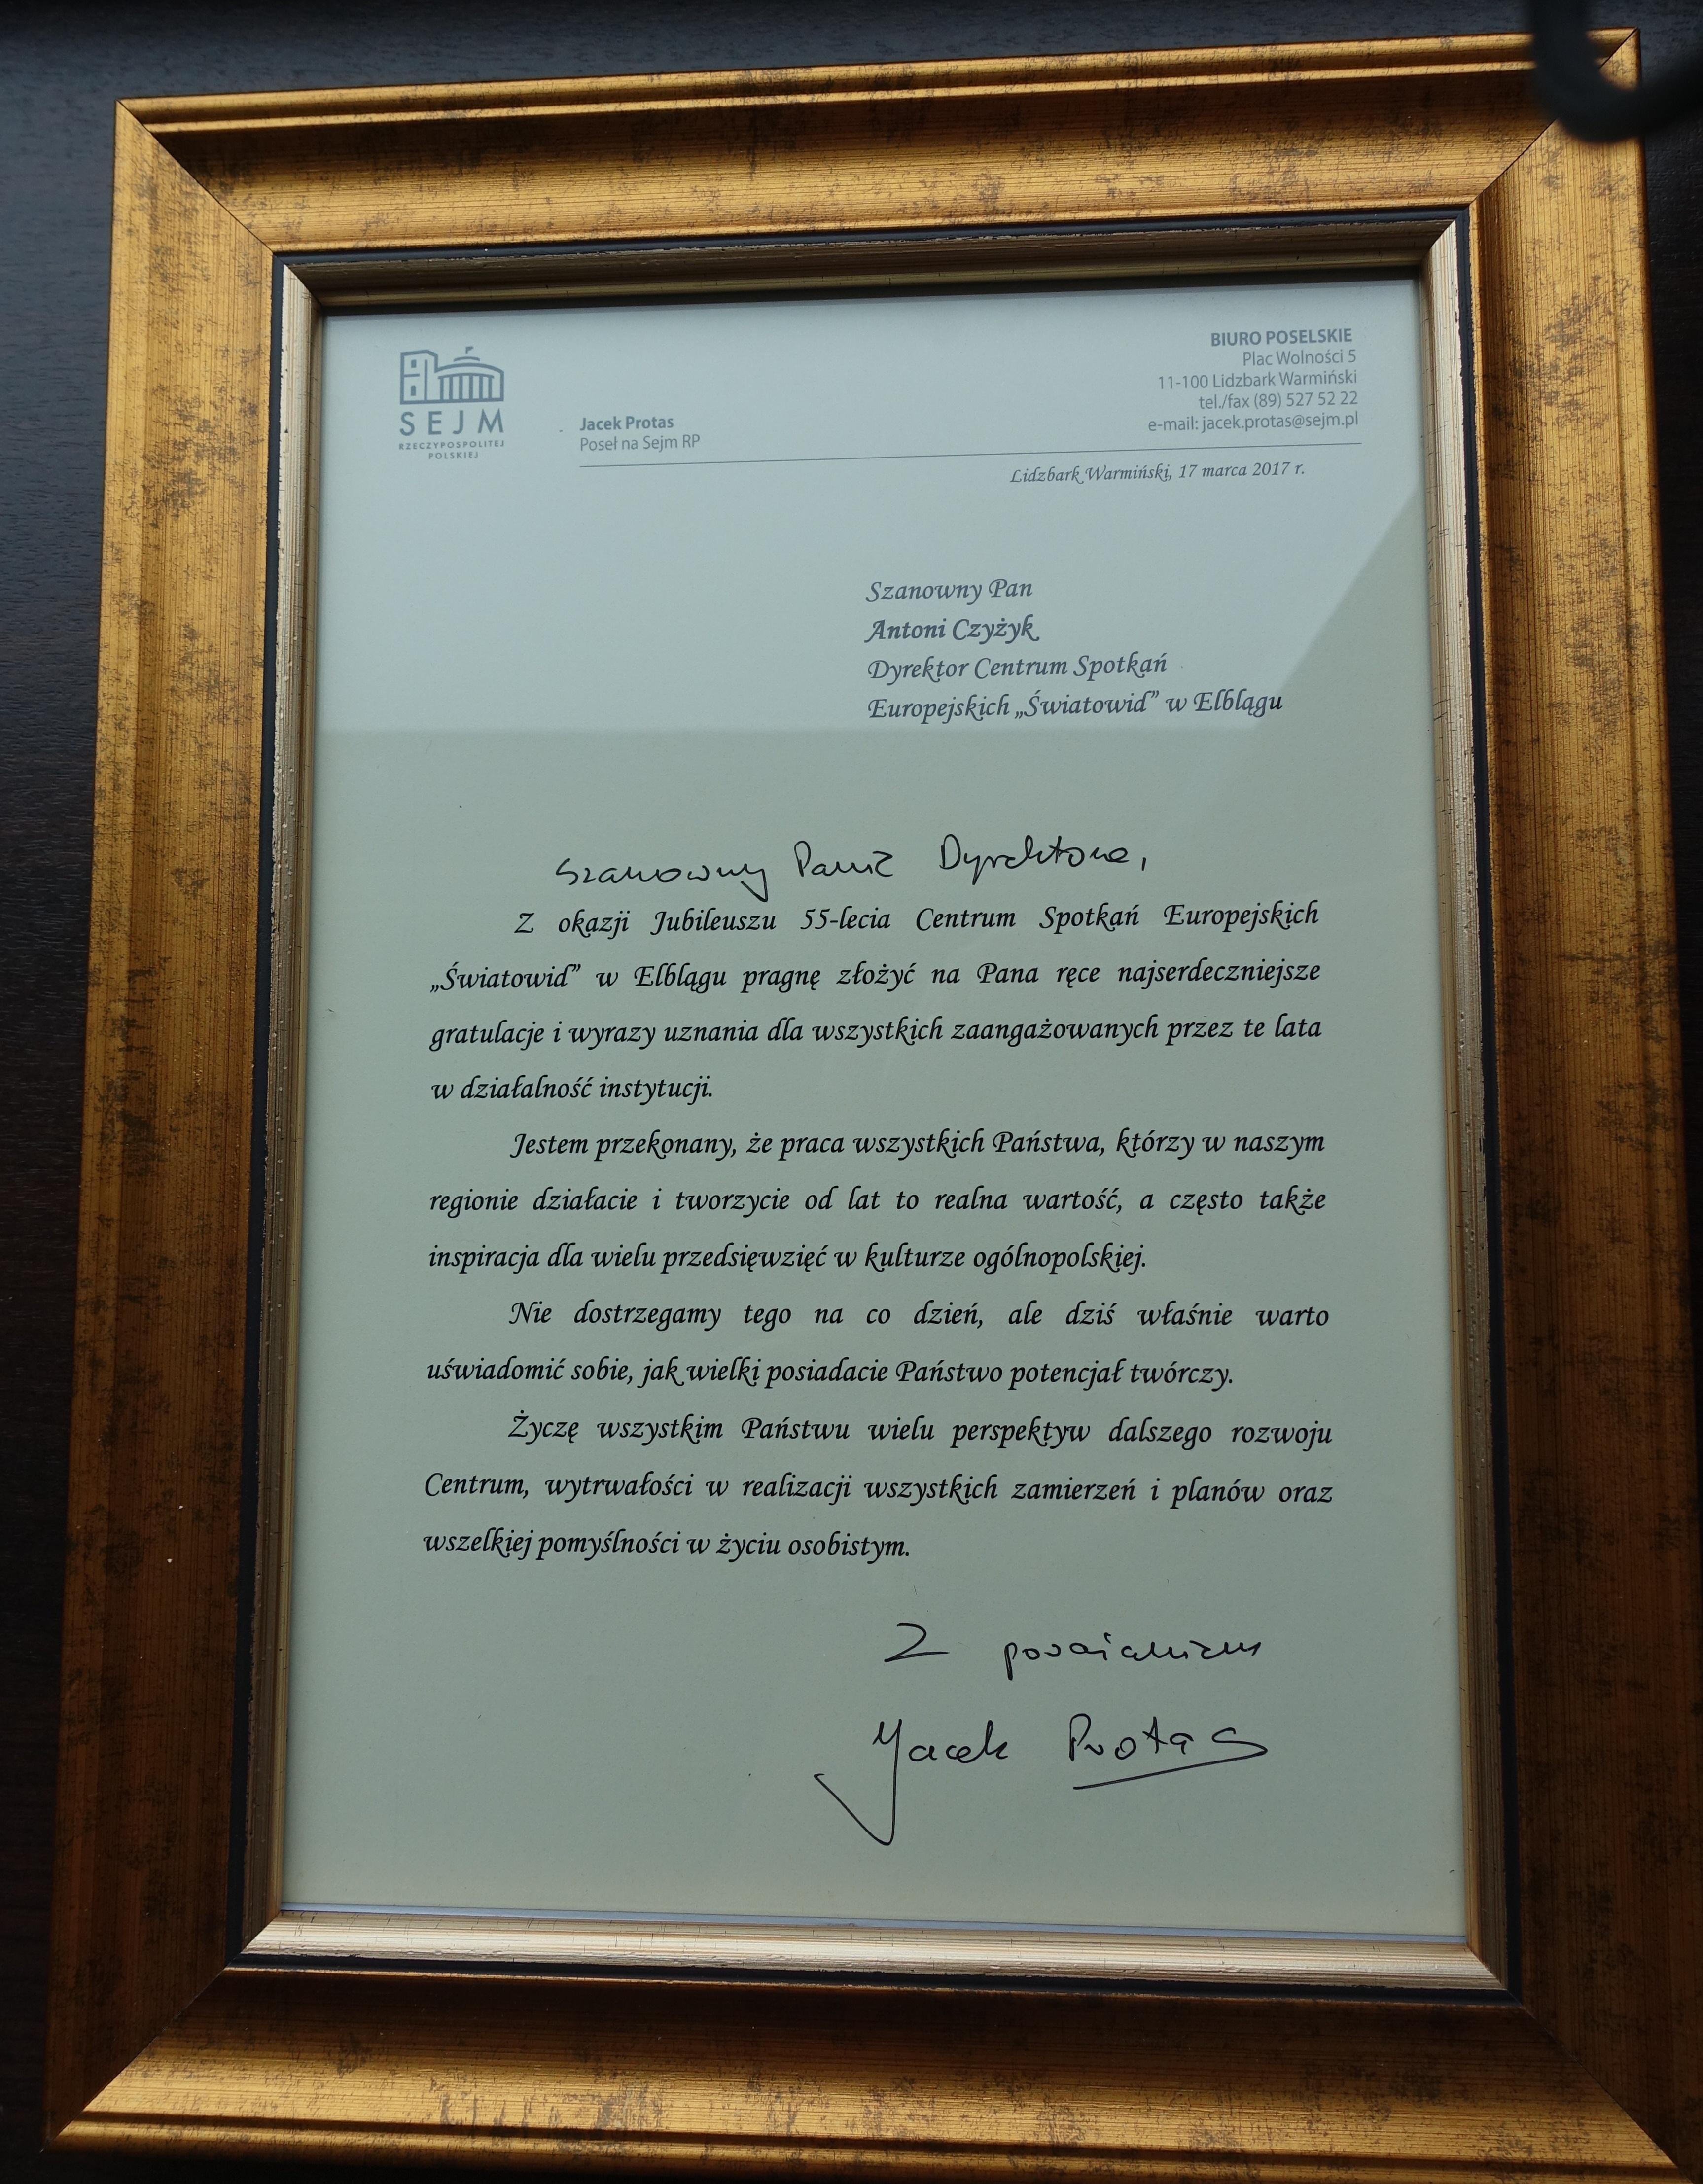 SEJM
RZECZYPOSPOLITEJ
POLSKIEJ
Jacek Protas
Poseł na Sejm RP
BIURO POSELSKIE
Plac Wolności 5
11-100 Lidzbark Warmiński
tel./fax (89) 527 52 22
e-mail: jacek.protas@sejm.pl
Lidzbark Warmiński, 17 marca 2017 r.
Szanowny Pan
Antoni Czyżyk
Dyrektor Centrum Spotkań
Europejskich „Światowid” w Elblągu
Szanowny Panie Dyrektorze,
Z okazji Jubileuszu 55-lecia Centrum Spotkań Europejskich
„Światowid” w Elblągu pragnę złożyć na Pana ręce najserdeczniejsze
gratulacje i wyrazy uznania dla wszystkich zaangażowanych przez te lata
w działalność instytucji.
Jestem przekonany, że praca wszystkich Państwa, którzy w naszym
regionie działacie i tworzycie od lat to realna wartość, a często także
inspiracja dla wielu przedsięwzięć w kulturze ogólnopolskiej.
Nie dostrzegamy tego na co dzień, ale dziś właśnie warto
uświadomić sobie, jak wielki posiadacie Państwo potencjał twórczy.
Życzę wszystkim Państwu wielu perspektyw dalszego rozwoju
Centrum, wytrwałości w realizacji wszystkich zamierzeń i planów oraz
wszelkiej pomyślności w życiu osobistym.
Z poważaniem
Jacek Protas